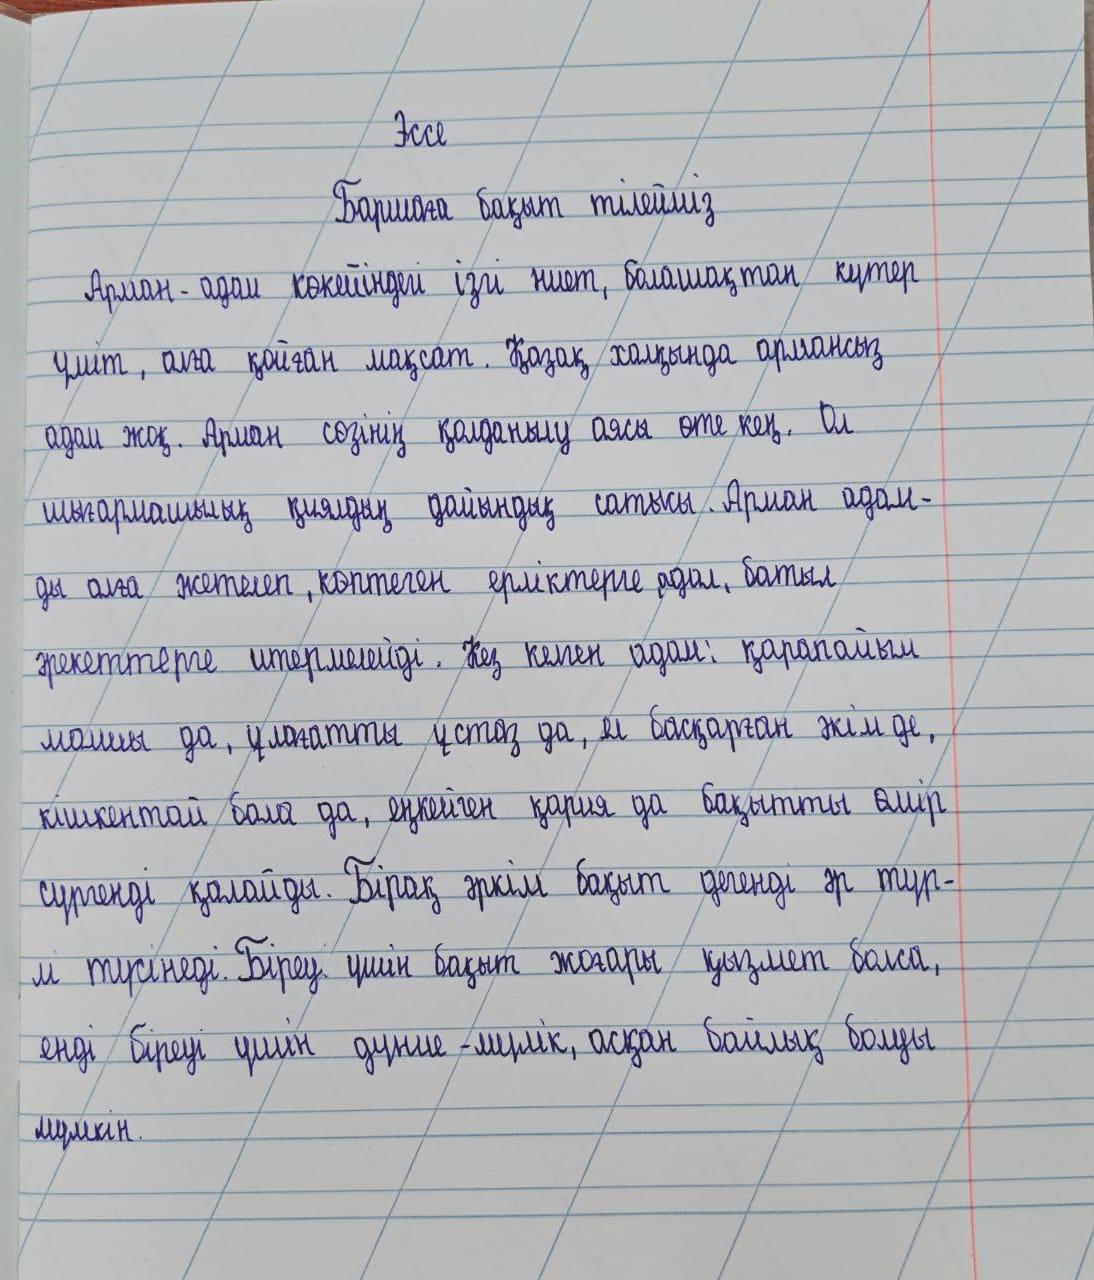 Эссе
Баршаға бақыт тілейміз
Арман - адам көкейіндегі ізгі ниет, болашақтан күтер
үміт, алға қойған мақсат. Қазақ халқында армансыз
адам жоқ. Арман сөзінің қолданылу аясы өте кең. Ол
шығармашылық қиялдың дайындық сатысы. Арман адам-
ды алға жетелеп, көптеген ерліктерге адал, батыл
әрекеттерге итермелейді. Кез келген адам: қарапайым
малшы да, ұлағатты ұстаз да, ел басқарған әкім де,
кішкентай бала да, еңкейген қария да бақытты өмір
сүргенді қалайды. Бірақ әркім бақыт дегенді әр түр-
лі түсінеді. Біреу үшін бақыт жоғары қызмет болса,
енді біреуі үшін дүние-мүлік, асқан байлық болуы
мүмкін.